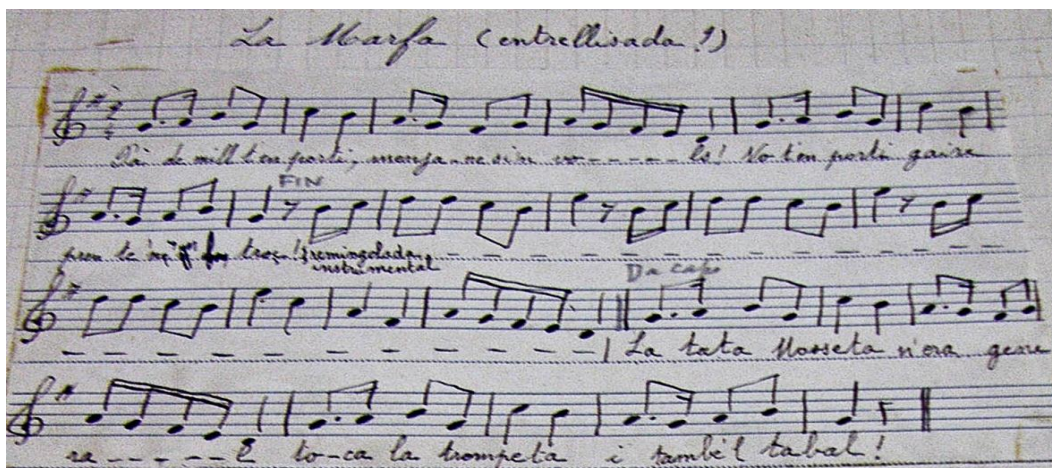 La Marfa (entrellisada!)
Pâi de mill t'en porti, menja-ne si'n vo - - - - - ls! No t'en porti gaire
FIN
pren te'n troç! tremingolada,
instrumental
Da capo
La tata Mosseta n'era gene
ra - - - - - l to-ca la trompeta i també'l tabal!